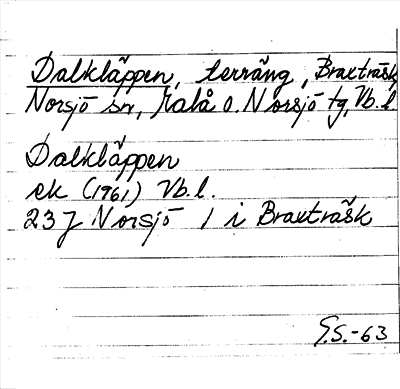 Dalkläppen, terräng, Braxträsk
Norsjö sn, Malå o. Norsjö tg, Vb.l.
Dalkläppen
ek (1961) Vb.l.
23J Norsjö 1 i Braxträsk
G.S.-63